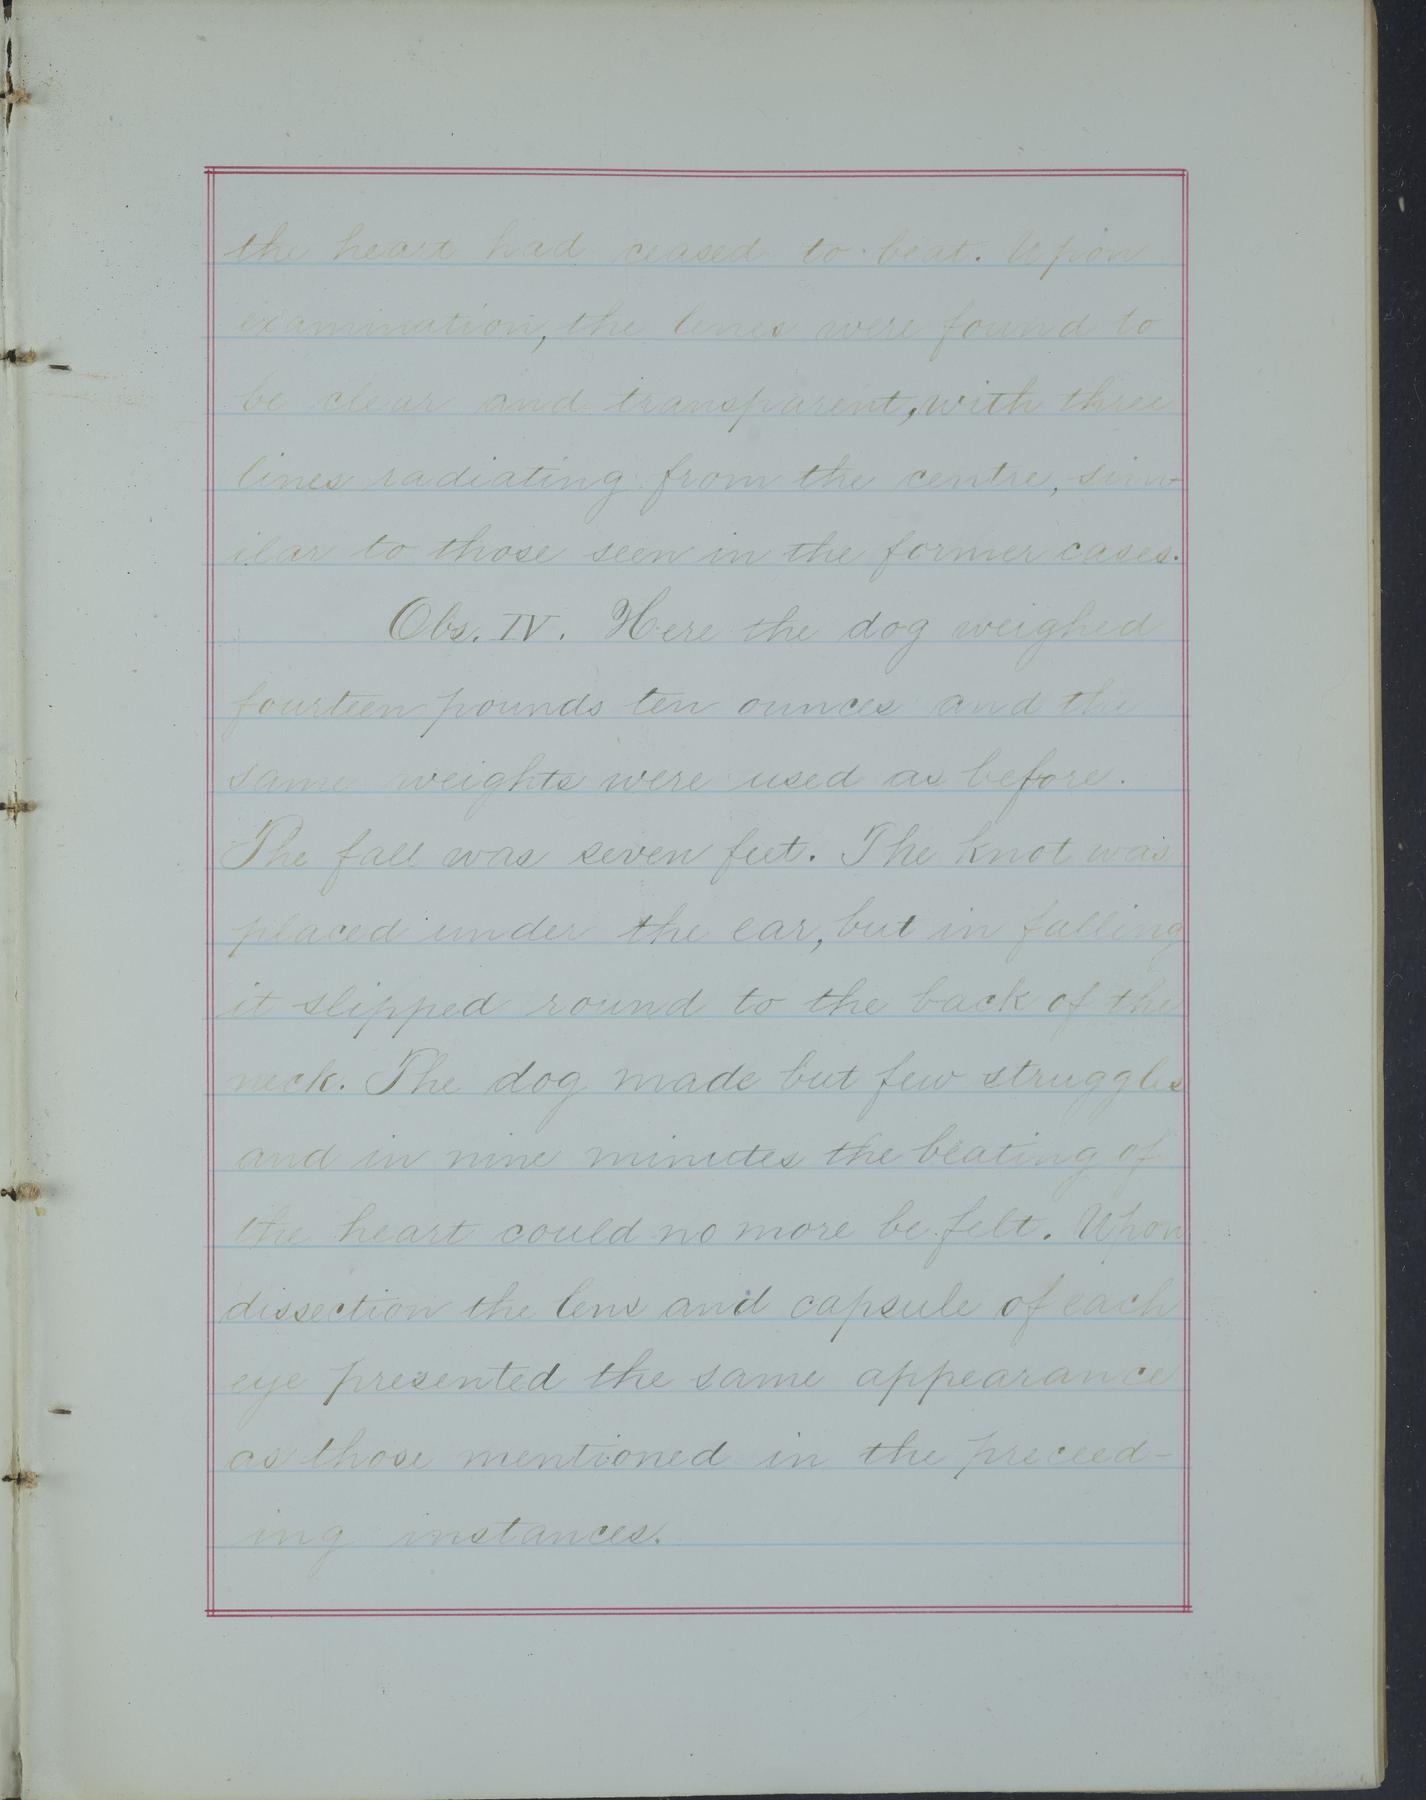 the heart had ceased to beat. Upon
examination, the lenes were found to
be clear and transparent, with three
lines radiating from the centre, sim-
ilar to those seen in the former cases.
Obs. IV. Here the dog weighed
fourteen pounds ten ounces and the
same weights were used as before.
The fall was seven feet. The knot was
placed under the ear, but in falling
it slipped round to the back of the
neck. The dog made but few struggles
and in nine minutes the beating of
the heart could no more be felt. Upon
dissection the lens and capsule of each
eye presented the same appearance
as those mentioned in the preceed-
ing instances.